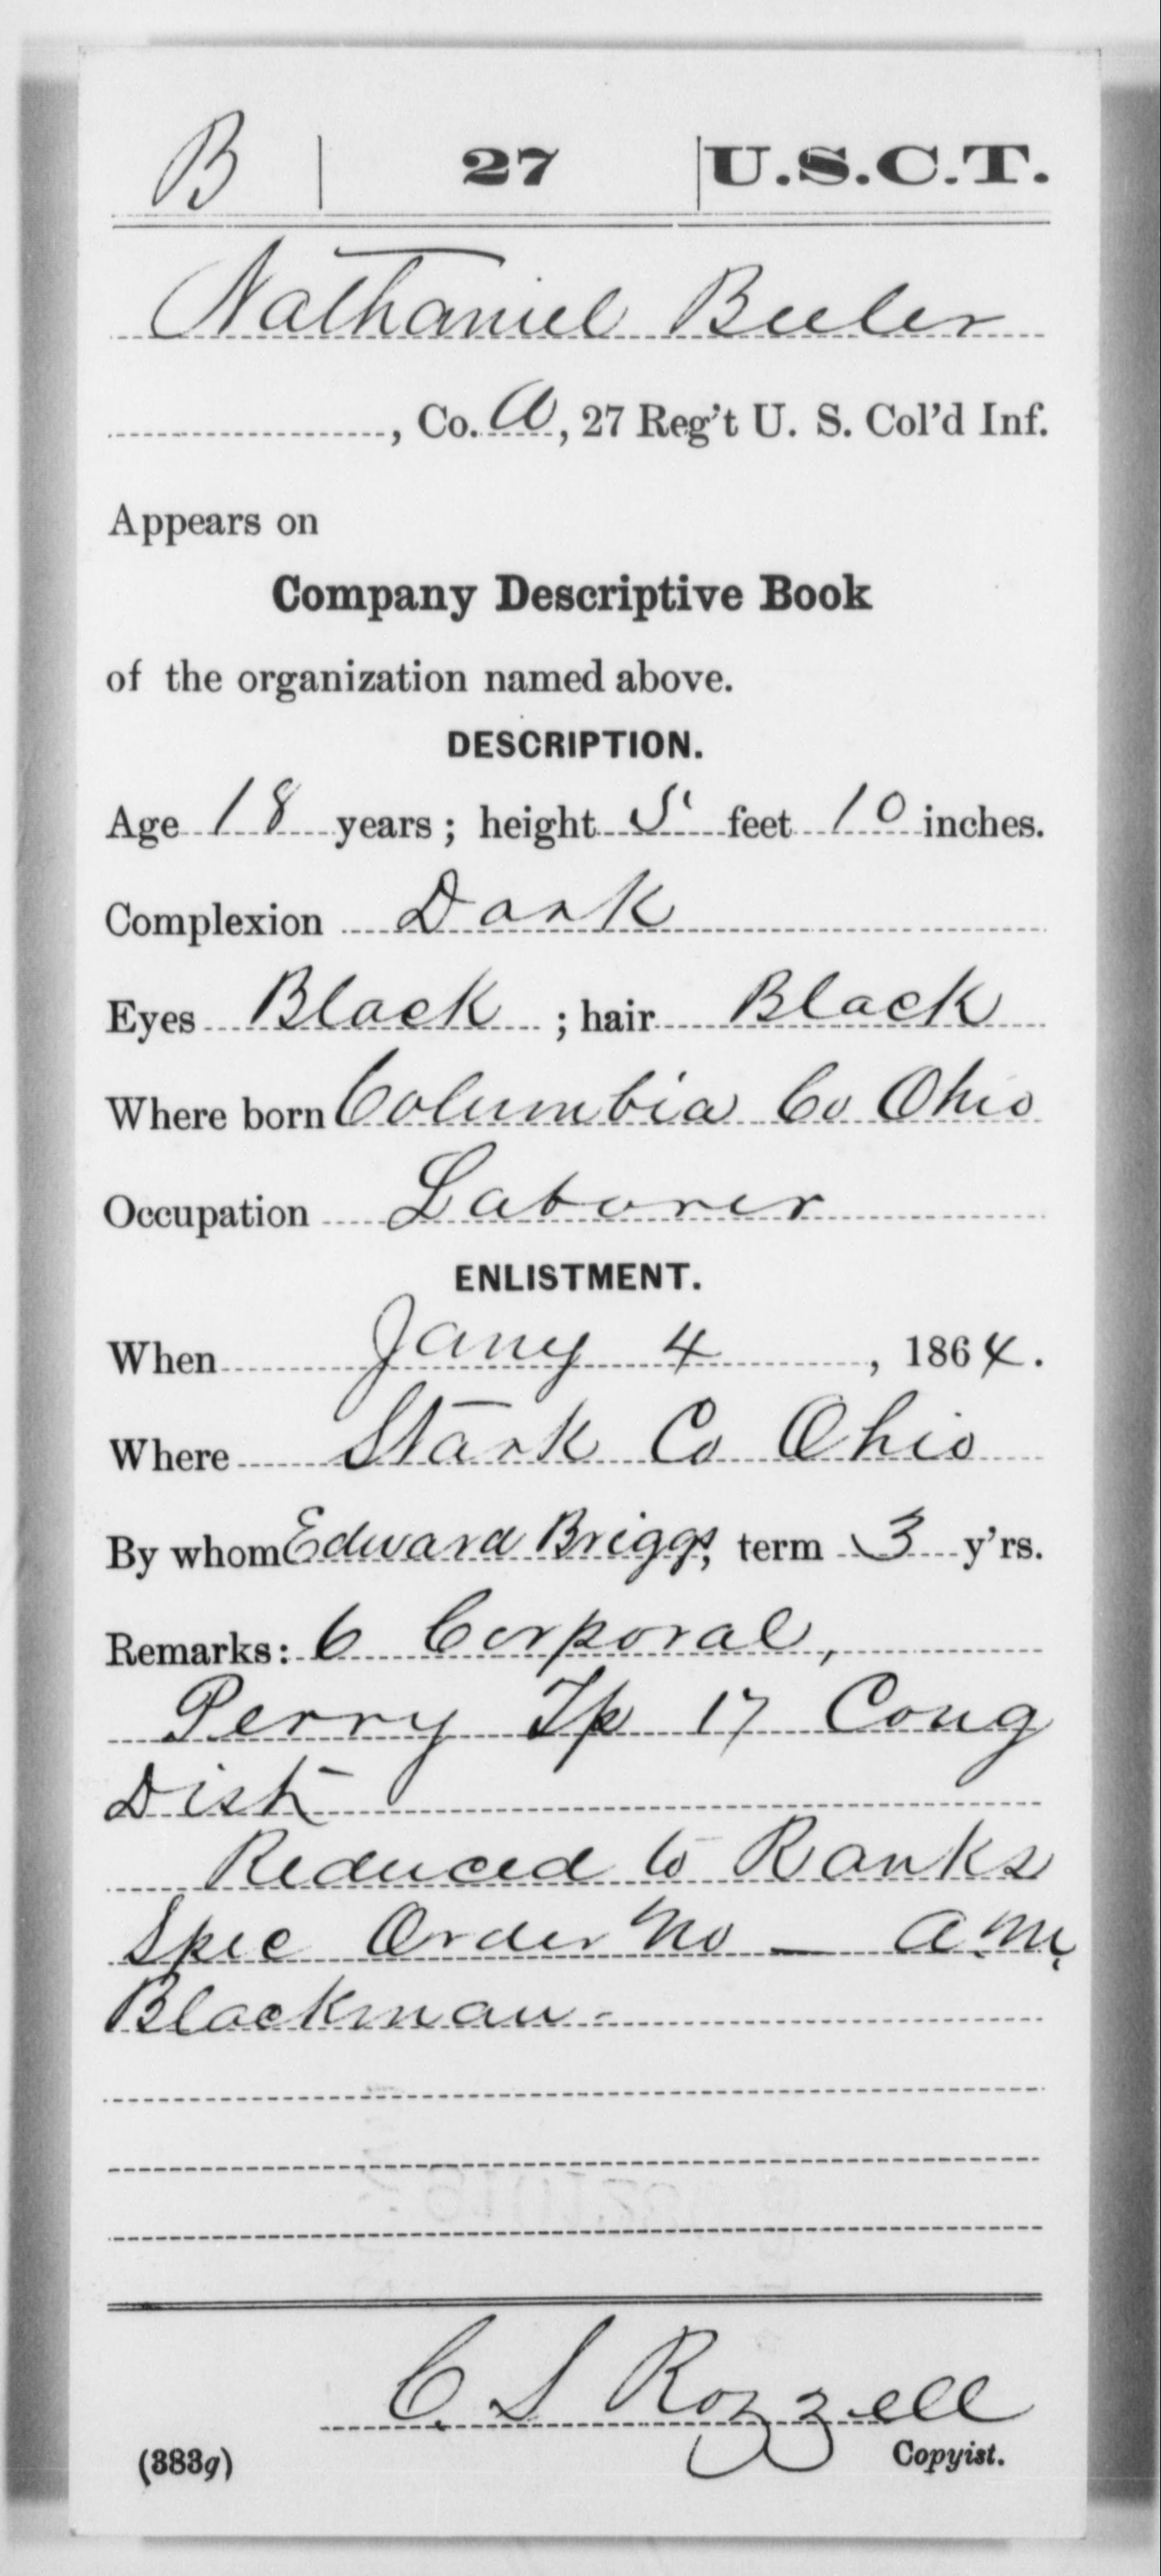 B | 27 | U.S.C.T.
Nathaniel Beeler
, Co. A, 27 Reg't U. S. Col'd Inf.
Appears on
Company Descriptive Book
of the organization named above.
DESCRIPTION.
Age 18 years; height 5 feet 10 inches.
Complexion Dark
Eyes Black; hair Black
Where born Columbia Co Ohio
Occupation Laborer
ENLISTMENT.
When Jany 4, 1864.
Where Stark Co Ohio
By whom Edward Briggs, term 3 y'rs.
Remarks: 6 Corporal,
Perry Tp 17 Cong
Dist
Reduced to Ranks
Spec Order No — A.M.
Blackman-
C. S Rozzell
(383g) Copyist.